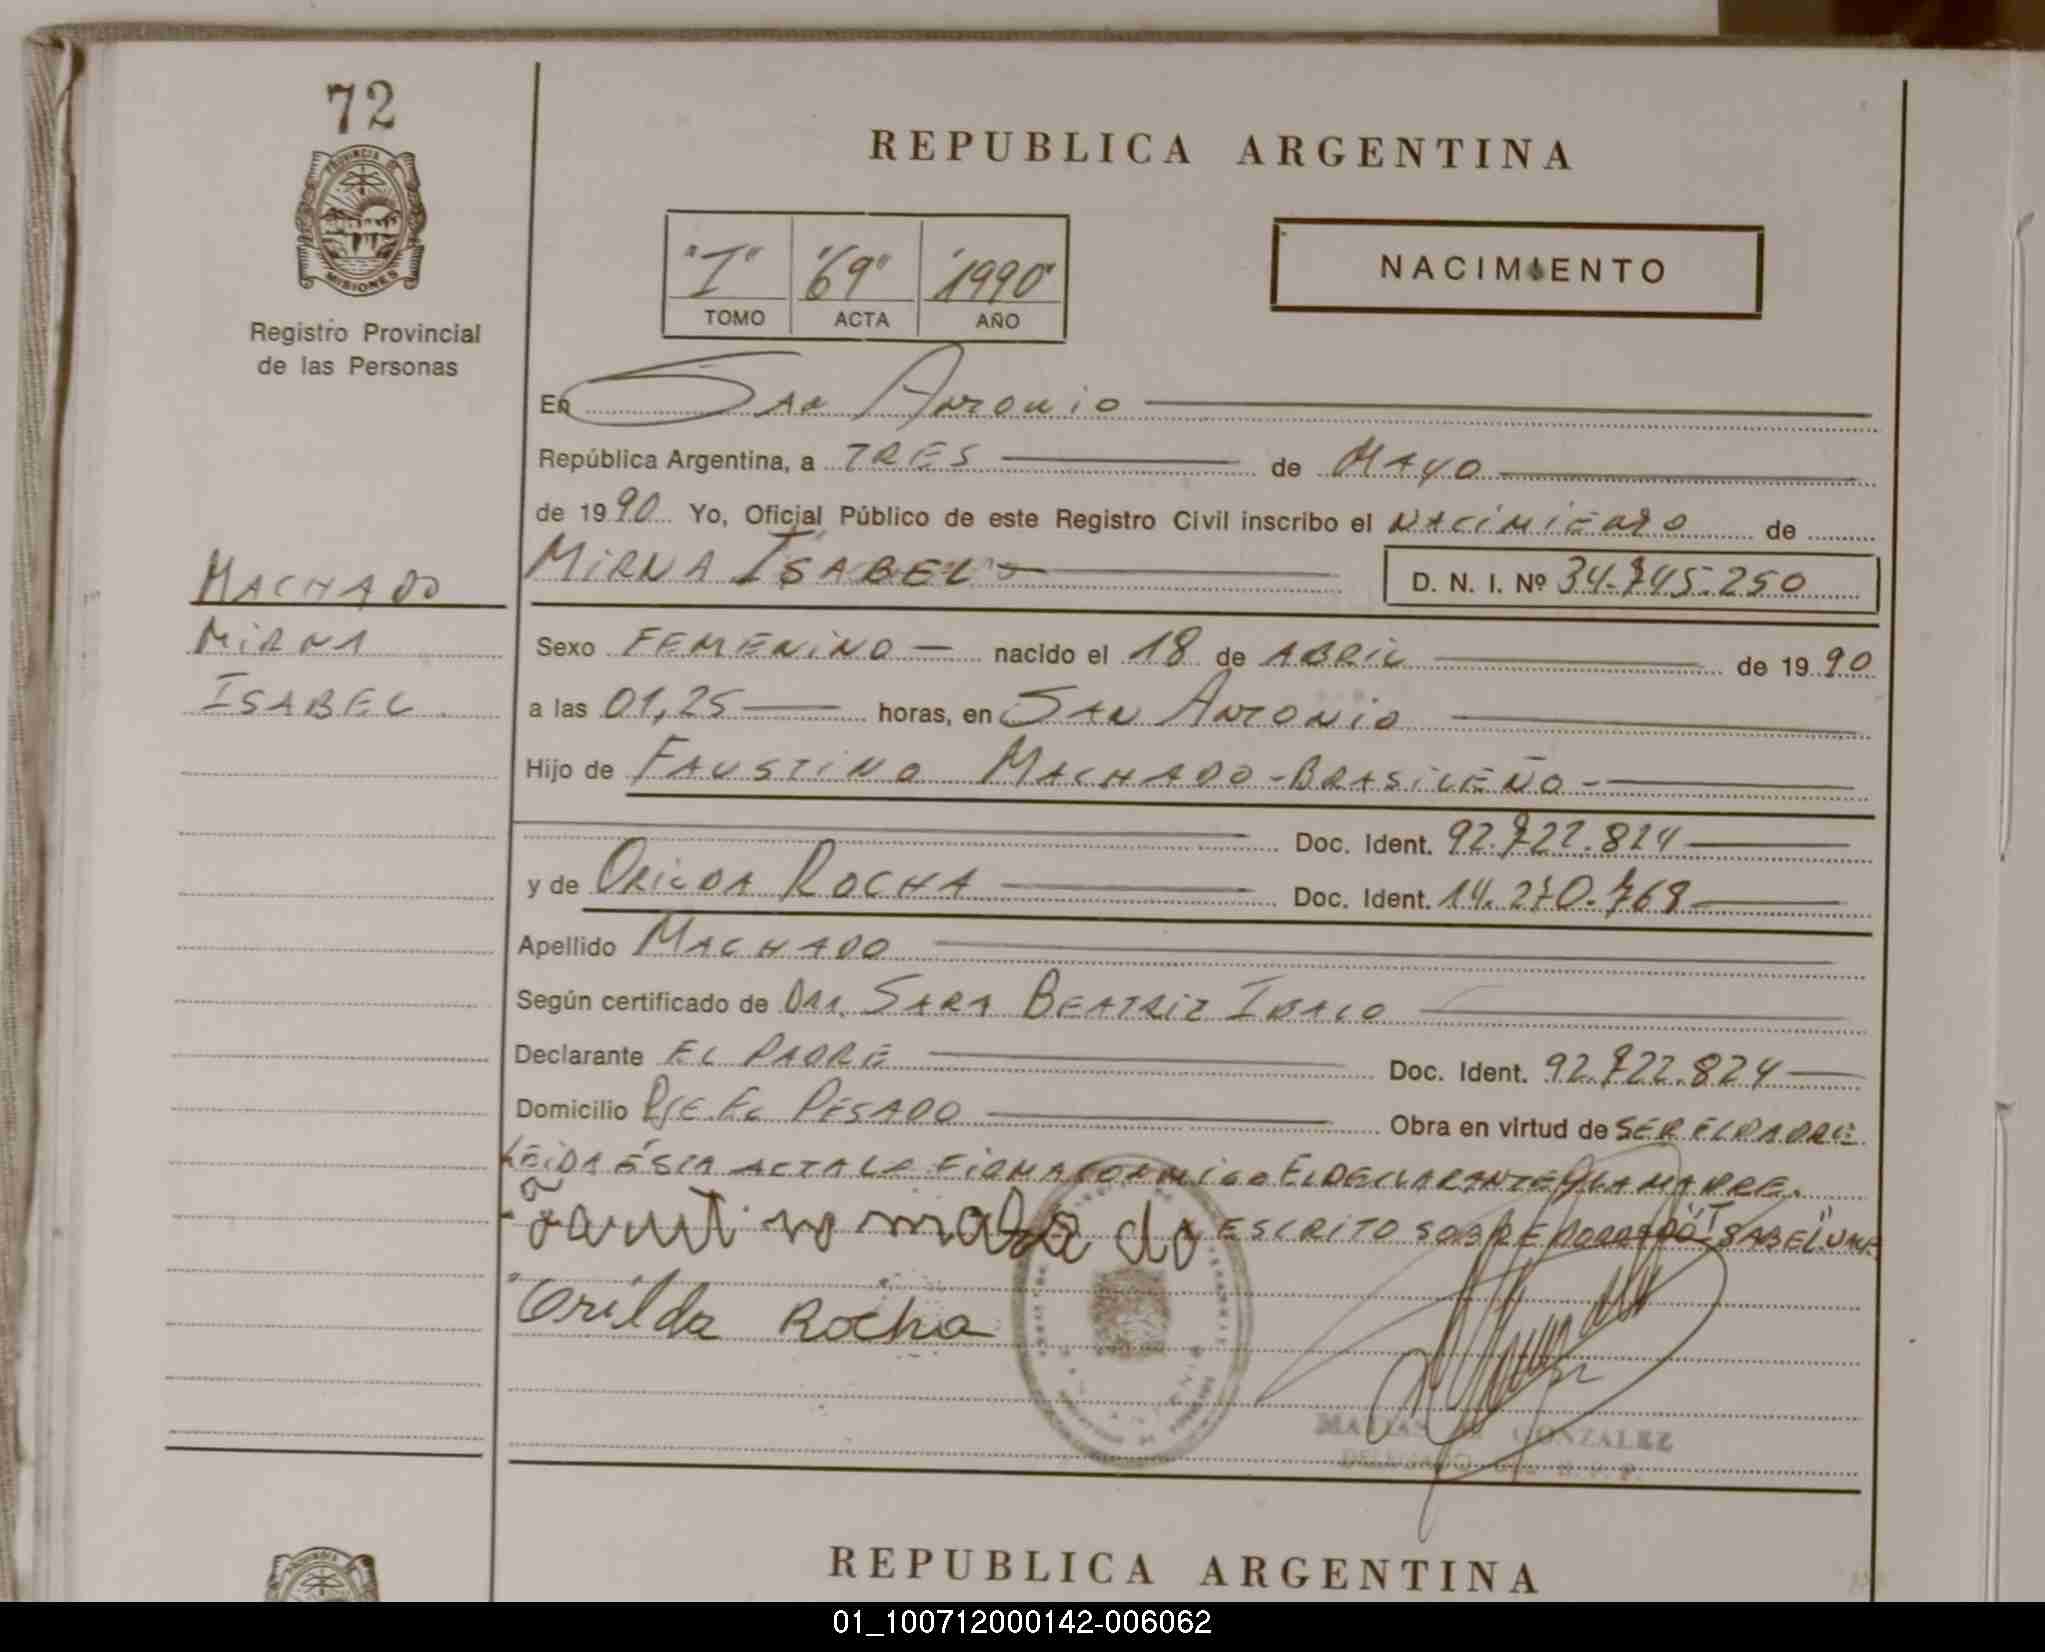 72
PROVINCIA DE
MISIONES
Registro Provincial
de las Personas
REPUBLICA ARGENTINA
"I" "69" "1990"
TOMO ACTA AÑO
NACIMIENTO
En San Antonio
República Argentina, a TRES de MAYO
de 1990 Yo, Oficial Público de este Registro Civil inscribo el NACIMIENTO de
MIRNA ISABEL D. N. I. Nº 34.745.250
MACHADO
MIRNA
ISABEL
Sexo FEMENINO nacido el 18 de ABRIL de 1990
a las 01,25 horas, en SAN ANTONIO
Hijo de FAUSTINO MACHADO - BRASILEÑO -
Doc. Ident. 92.722.824
y de ORILDA ROCHA Doc. Ident. 14.270.768
Apellido MACHADO
Según certificado de DRA. SARA BEATRIZ
Declarante EL PADRE Doc. Ident. 92.722.824
Domicilio PJE. EL PESADO Obra en virtud de SER EL PADRE
LEIDA ÉSTA ACTA LA FIRMA CONMIGO EL DECLARANTE Y LA MADRE.
ESCRITO SOBRE "ISABEL" VALE
Orilda Rocha
GONZALEZ
DELEGADO
REPUBLICA ARGENTINA
01_100712000142-006062